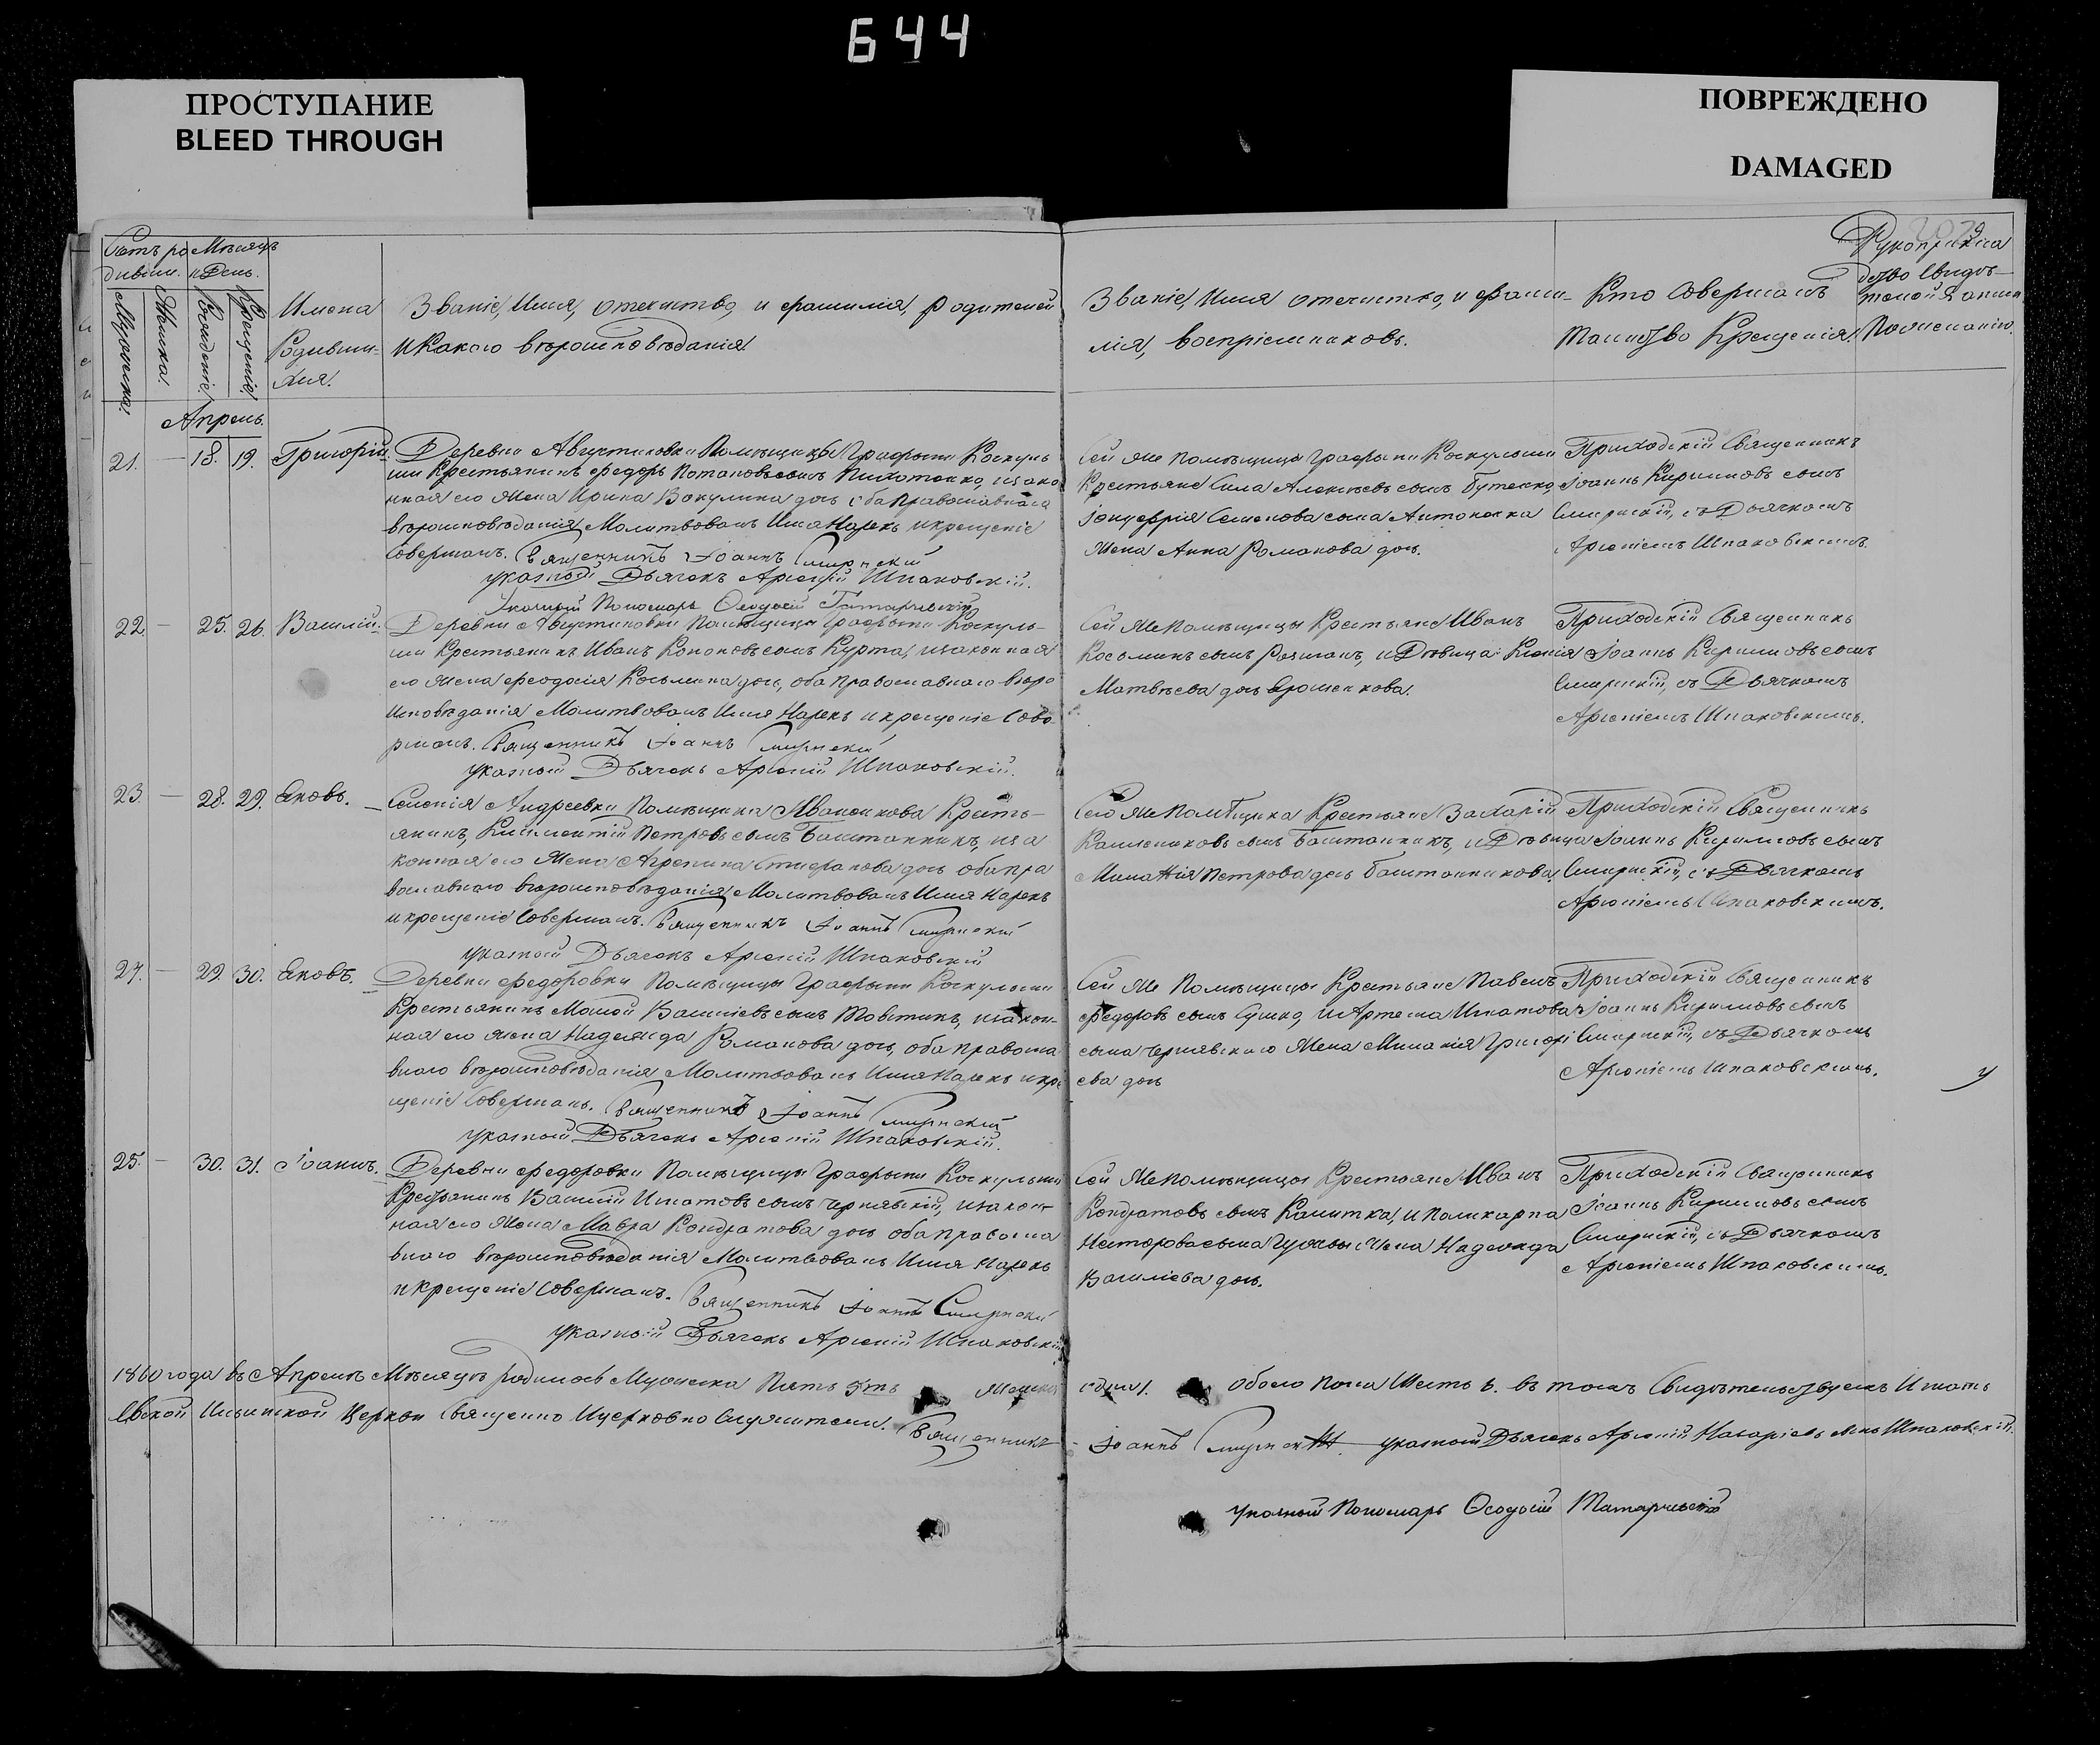 644
ПРОСТУПАНИЕ
BLEED THROUGH
ПОВРЕЖДЕНО
DAMAGED
Мѣсяцъ
и День.
Мужеска.
Женска.
Рожденіе.
Крещеніе.
Имена
Родивши-
хся.
Званіе, Имя, отечество, и фамилія, родителей
и Какого вѣроисповѣданія.
Званіе, Имя отечество, и фами-
лія, воспріемниковъ.
Кто совершалъ
таинство Крещенія.
Рукоприкла
дство свидѣ-
телей записи
По желанію.
Апрель.
21. — 18. 19. Григорій.
Деревни Августиновки Помѣщицы Графыни Коскуль
ши Крестьянинъ Федоръ Потаповъ сынъ Пихотенко, изако
нная его Жена Ирина Вакулина дочь оба Православнаго
вѣроисповѣданія Молитвовалъ Имя Нарекъ икрещеніе
совершалъ. Священникъ Іоаннъ Смирнский
указной Дьячекъ Арсеній Шпаковскій.
Указный Пономарь Ѳеодосій Татарчевскій
Сей же помѣщицы Графыни Коскульши
Крестьяне Сила Алексѣевъ сынъ Бутенко,
Іануфрія Семенова сына Антоненка
Жена Анна Романова дочь.
Приходскій Священникъ
Іоаннъ Кириловъ сынъ
Смирнскій, съ Дьячкомъ
Арсеніемъ Шпаковскимъ.
22 — 25. 26. Василій.
Деревни Августиновки Помѣщицы Графыни Коскуль-
ши Крестьянинъ Иванъ Кононовъ сынъ Курта, изаконная
его жена Феодосія Косьмина дочь, оба Православнаго вѣро
исповѣданія Молитвовалъ Имя Нарекъ икрещеніе Сове
ршалъ. Священникъ Іоаннъ Смирнскій
указной Дьячекъ Арсеній Шпаковскій.
Сей же Помѣщицы Крестьяне Иванъ
Косьминъ сынъ, и Дѣвица Ксенія
Матвѣева дочь
Приходскій Священникъ
Іоаннъ Кириловъ сынъ
Смирнскій, съ Дьячкомъ
Арсеніемъ Шпаковскимъ.
23. — 28. 29. Яковъ.
Селенія Андреевки Помѣщика Иваненкова Кресть-
янинъ, Климентій Петровъ сынъ Баштанникъ, иза
конная его Жена Агрепина Стефанова дочь оба пра
вославнаго вѣроисповѣданія Молитвовалъ Имя Нарекъ
икрещеніе Совершалъ. Священникъ Іоаннъ Смирнскій
указной Дьячекъ Арсеній Шпаковскій
Сего же Помѣщика Крестьяне Захарій
сынъ Баштанникъ, и Дѣвица
Петрова дочь Баштанникова.
Приходскій Священникъ
Іоаннъ Кириловъ сынъ
Смирнскій, съ Дьячкомъ
Арсеніемъ Шпаковскимъ.
— 29. 30. Яковъ.
Деревни Федоровки Помѣщицы Графыни Коскульши
Крестьянинъ Василіевъ сынъ, изакон-
ная его жена Надежда Романова дочь, оба правосла
внаго вѣроисповѣданія Молитвовалъ Имя Нарекъ икре
щеніе Совершалъ. Священникъ Іоаннъ Смирнскій
указной Дьячекъ Арсеній Шпаковскій.
Сей же Помѣщицы Крестьяне Павелъ
Федоровъ сынъ Сушко, и Артема Игнатова
сына Чернявского Жена Меланія Григорі
ева дочь
Приходскій Священникъ
Іоаннъ Кириловъ сынъ
Смирнскій, съ Дьячкомъ
Арсеніемъ Шпаковскимъ.
25. — 30. 31. Іоаннъ.
Деревни Федоровки Помѣщицы Графыни Коскульши
Крестьянинъ Василій Игнатовъ сынъ Чернявскій, изакон-
ная его Жена Мавра Кондратова дочь оба правосла
внаго вѣроисповѣданія Молитвовалъ Имя Нарекъ
икрещеніе Совершалъ. Священникъ Іоаннъ Смирнскій
Указной Дьячекъ Арсеній Шпаковскій
Сей же Помѣщицы Крестьяне Иванъ
Кондратовъ сынъ Калитка, и Поликарпа
Несторова сына Жена Надежда
Василіева дочь.
Приходскій Священникъ
Іоаннъ Кириловъ сынъ
Смирнскій, съ Дьячкомъ
Арсеніемъ Шпаковскимъ.
1860 года въ Апрелѣ Мѣсяцѣ родилось Мужеска Пять 5ть Женска одна 1. обоего пола Шесть 6. въ томъ Свидѣтельствуемъ Игнать
евской Ильинской Церкви Священно Ицерковно Служители. Священникъ Іоаннъ Смирнскій. указной Дьячекъ Арсеній Назаріевъ сынъ Шпаковскій.
указный Пономарь Ѳеодосій Татарчевскій